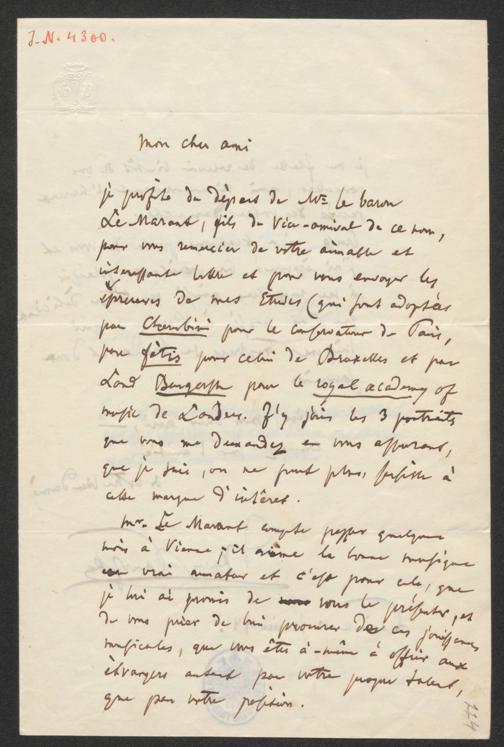 J.N. 4300.
mon cher ami
je profite du départ de Mr. le baron
Le Marant, fils du Vice-amiral de ce nom,
pour vous remercier de votre aimable et
intéressante lettre et pour vous envoyer les
épreuves de mes Etudes (qui sont adoptées
par Cherubini pour le conservatoire de Paris,
par fétis pour celui de Bruxelles et par
Lord Burgersh pour le royal academy of
music de Londres. J'y joins les 3 portraits
que vous me demandez en vous assurant,
que je suis, on ne peut plus, sensible à
cette marque d'intérêt.
Mr. Le Marant compte passer quelques
mois à Vienne; il aime la bonne musique
en vrai amateur et c'est pour cela, que
je lui ai promis de vous le présenter, et
de vous prier de lui procurer de ces jouissances
musicales, que vous êtes à-même à offrir aux
étrangers autant par votre propre talent,
que par votre position.
224